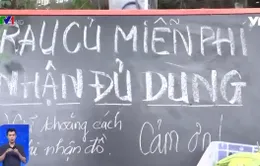 RAU CỦ MIỄN PHÍ
NHẬN ĐỦ DÙNG
khoảng cách
nhận đồ.
Cảm ơn!